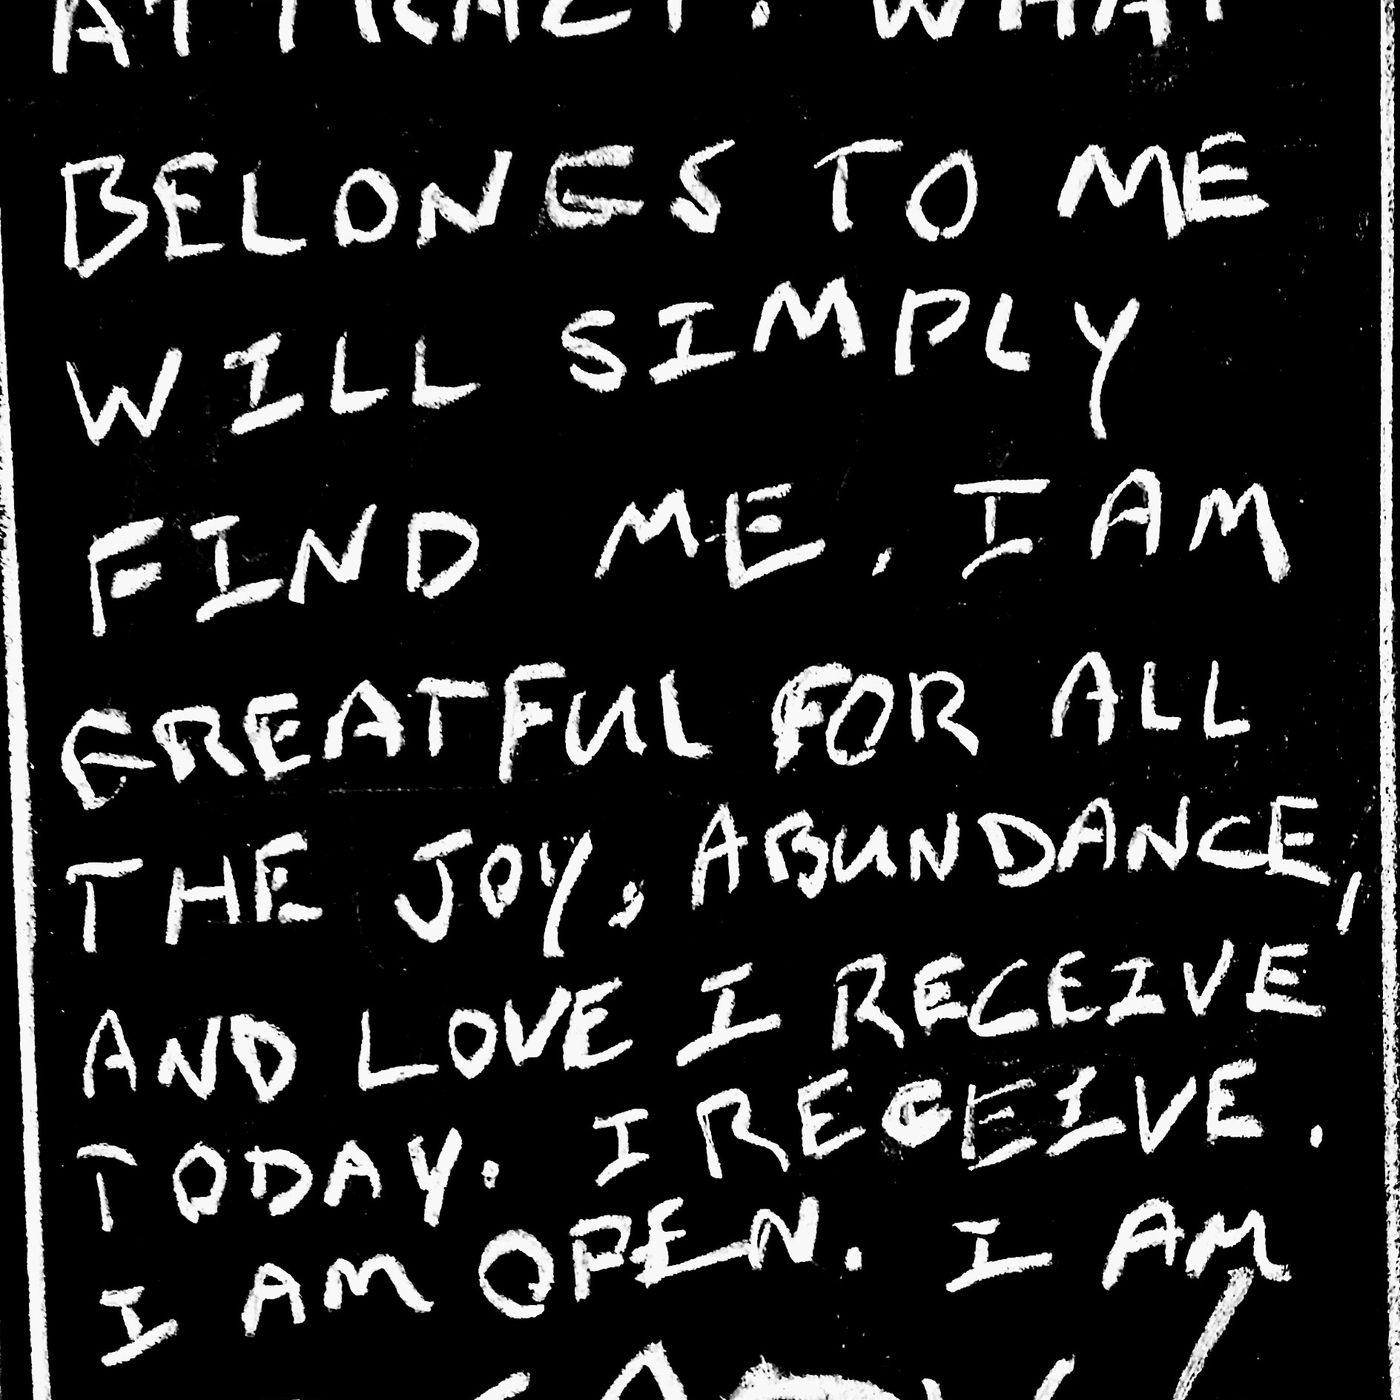 ATTRACT. WHAT
BELONGS TO ME
WILL SIMPLY
FIND ME. I AM
GREATFUL FOR ALL
THE JOY, ABUNDANCE,
AND LOVE I RECEIVE
TODAY. I RECEIVE.
I AM OPEN. I AM